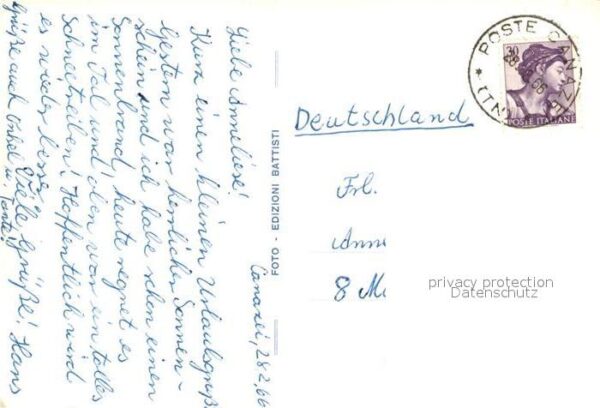 Canazei, 28.2.66
Liebe Anneliese!
Kurz einen kleinen Urlaubsgruß.
Gestern war herrlicher Sonnen-
schein und ich habe schon einen
Sonnenbrand, heute regnet es
im Tal und oben war ein tolles
Schneetreiben! Hoffentlich wird
es wieder besser.
Viele Grüße! Hans
Grüße auch Onkel u. Tante!
FOTO - EDIZIONI BATTISTI
POSTE CANAZEI
* (TN)
30
POSTE ITALIANE
Deutschland
Frl.
Anne
8 Mü
privacy protection
Datenschutz